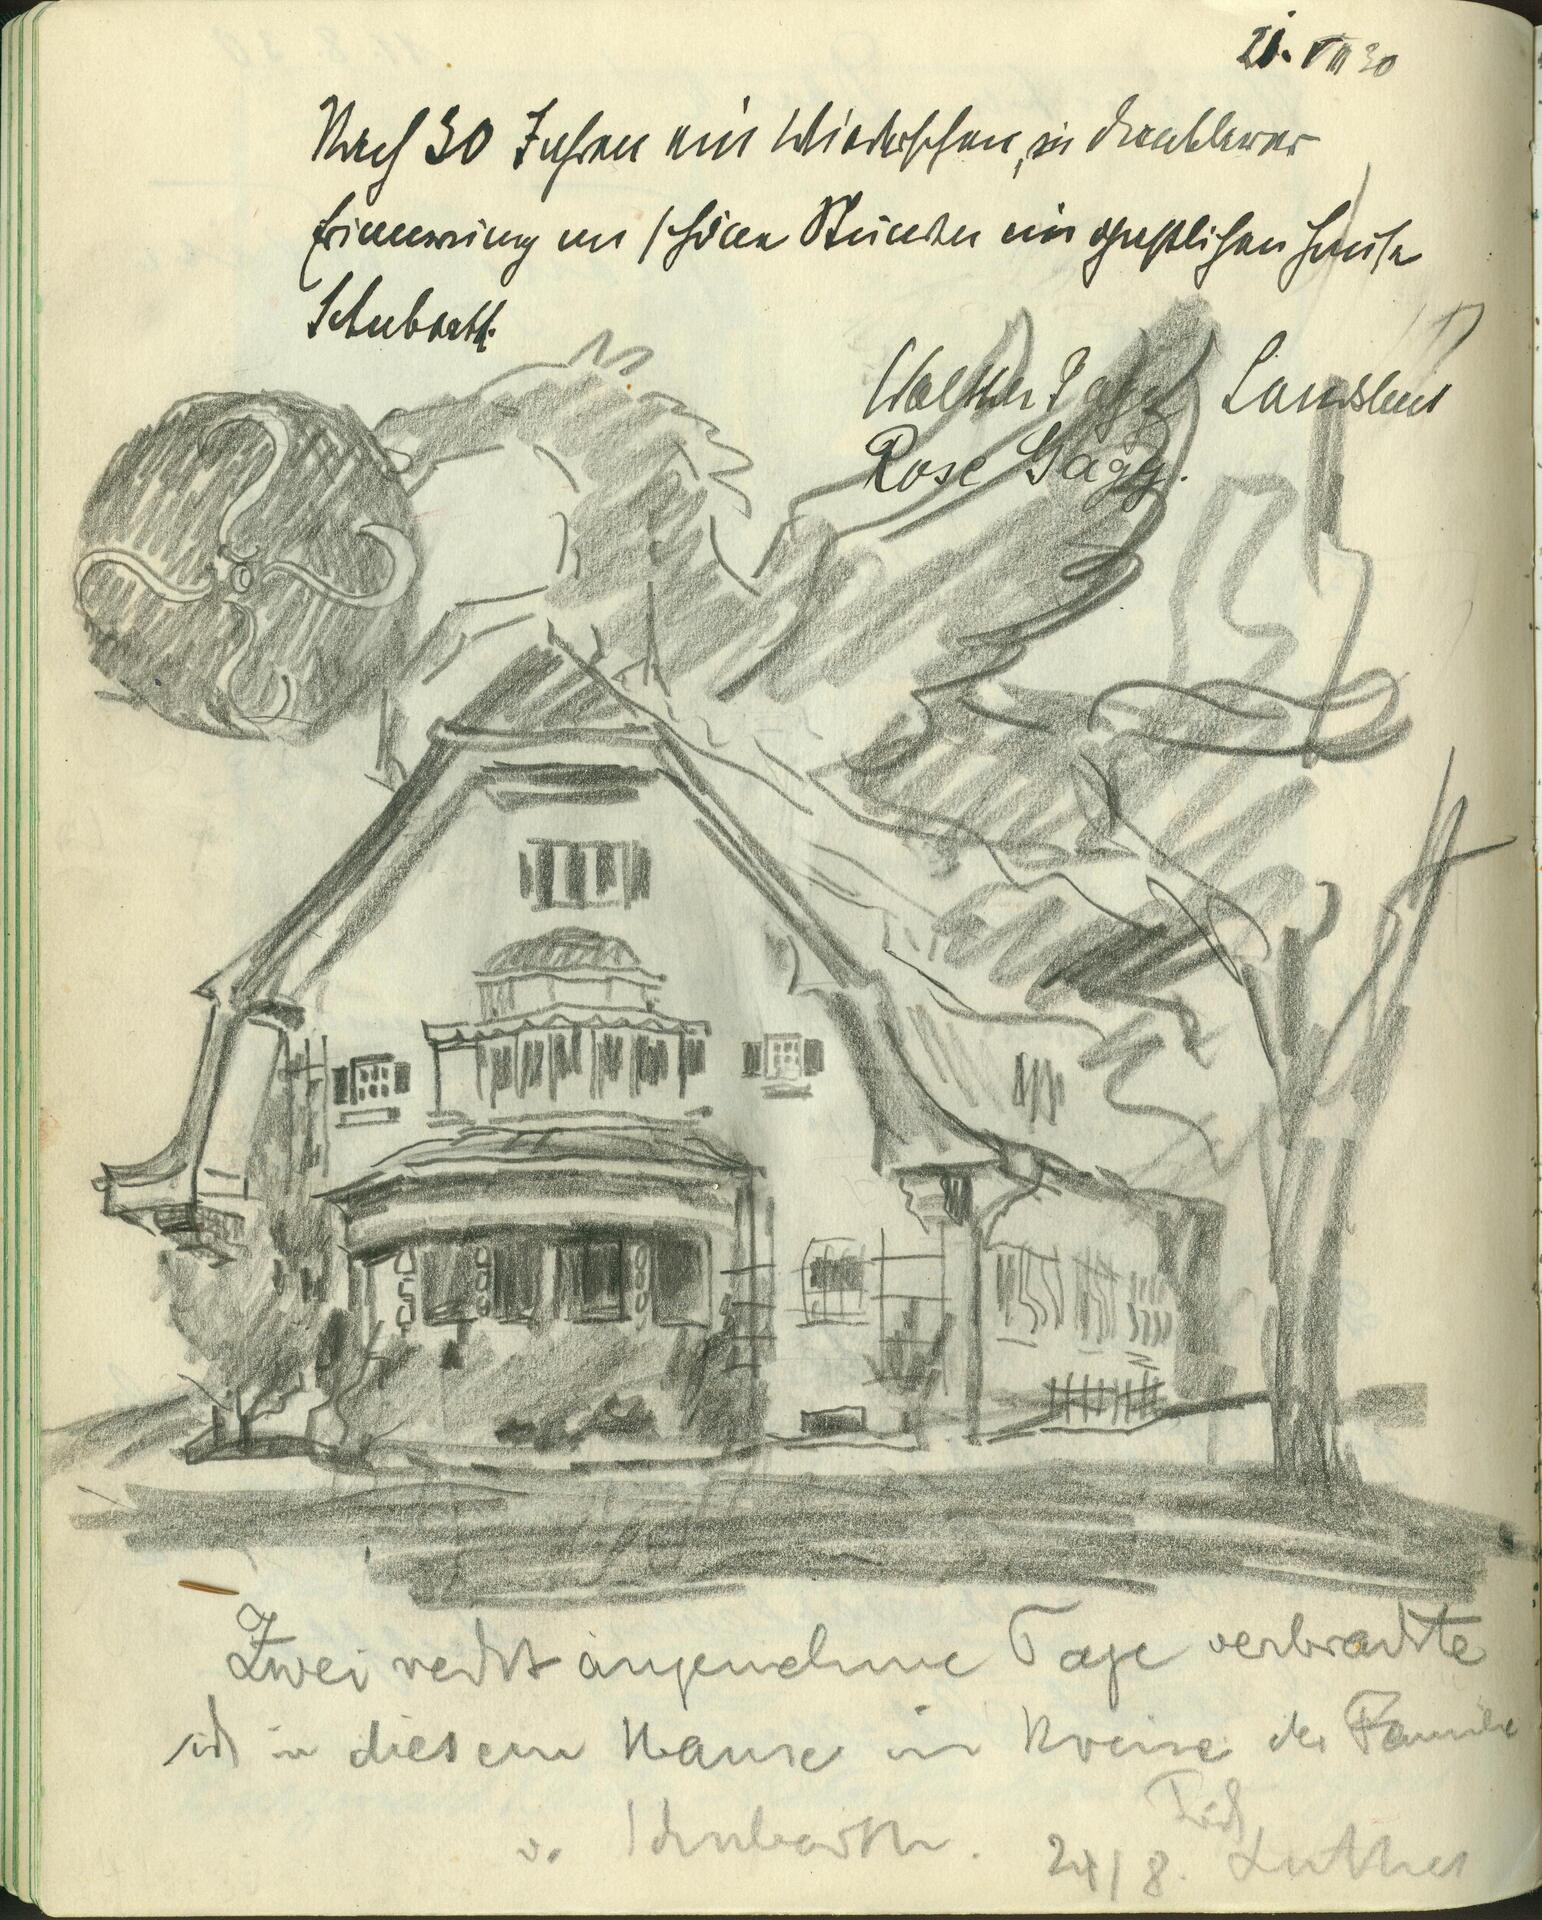 21. VIII 30
Nach 30 Jahren ein Wiedersehen, in dankbarer
Erinnerung an schöne Stunden im gastlichen Hause
Schubarth.
Walther Landshut
Rose Gagg.
Zwei recht angenehme Tage verbrachte
ich in diesem Hause im Kreise der Familie
v. Schubarth. 24/8. Luther